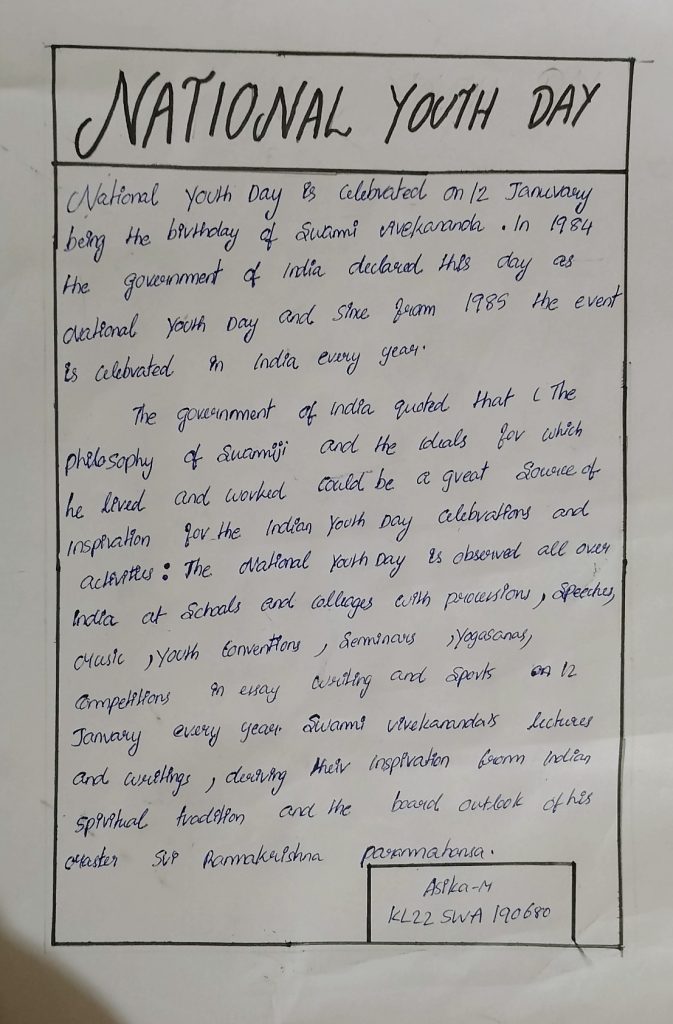 NATIONAL YOUTH DAY
National Youth Day is celebrated on 12 January
being the birthday of Swami vivekananda. In 1984
the government of India declared this day as
National Youth Day and since from 1985 the event
is celebrated in India every year.
The government of India quoted that ( The
philosophy of Swamiji and the ideals for which
he lived and worked could be a great Source of
inspiration for the Indian Youth Day celebrations and
activities : The National Youth Day is observed all over
India at Schools and colleages with processions, Speeches,
Music, Youth Conventions, Seminars, Yogasanas,
Competitions in essay writing and Sports on 12
January every year. Swami vivekananda's lectures
and writings, deriving their inspiration from Indian
spiritual tradition and the board outlook of his
Master Sri Ramakrishna paramahansa.
Asika-M
KL22 SWA 190680